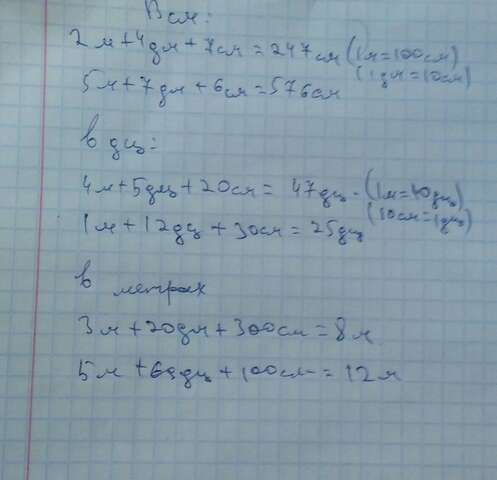 В см:
2м+4дм+7см=247см (1м=100см)
(1дм=10см)
5м+7дм+6см=576см
В дц:
4м+5дц+20см= 47дц. (1м=10дц)
(10см=1дц)
1м+12дц+30см=25дц
В метрах
3м+20дм+300см=8м
5м+60дц+100см=12м